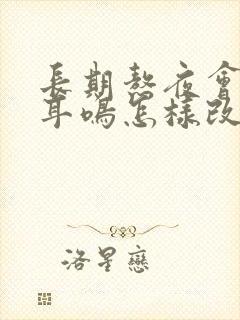 長期熬夜會
耳鳴怎樣改
洛星戀